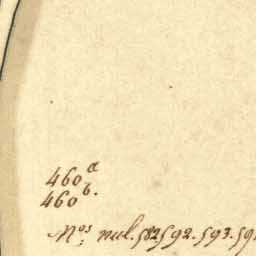 460 a
460 b.
Nos. nul. 582 592. 593. 59